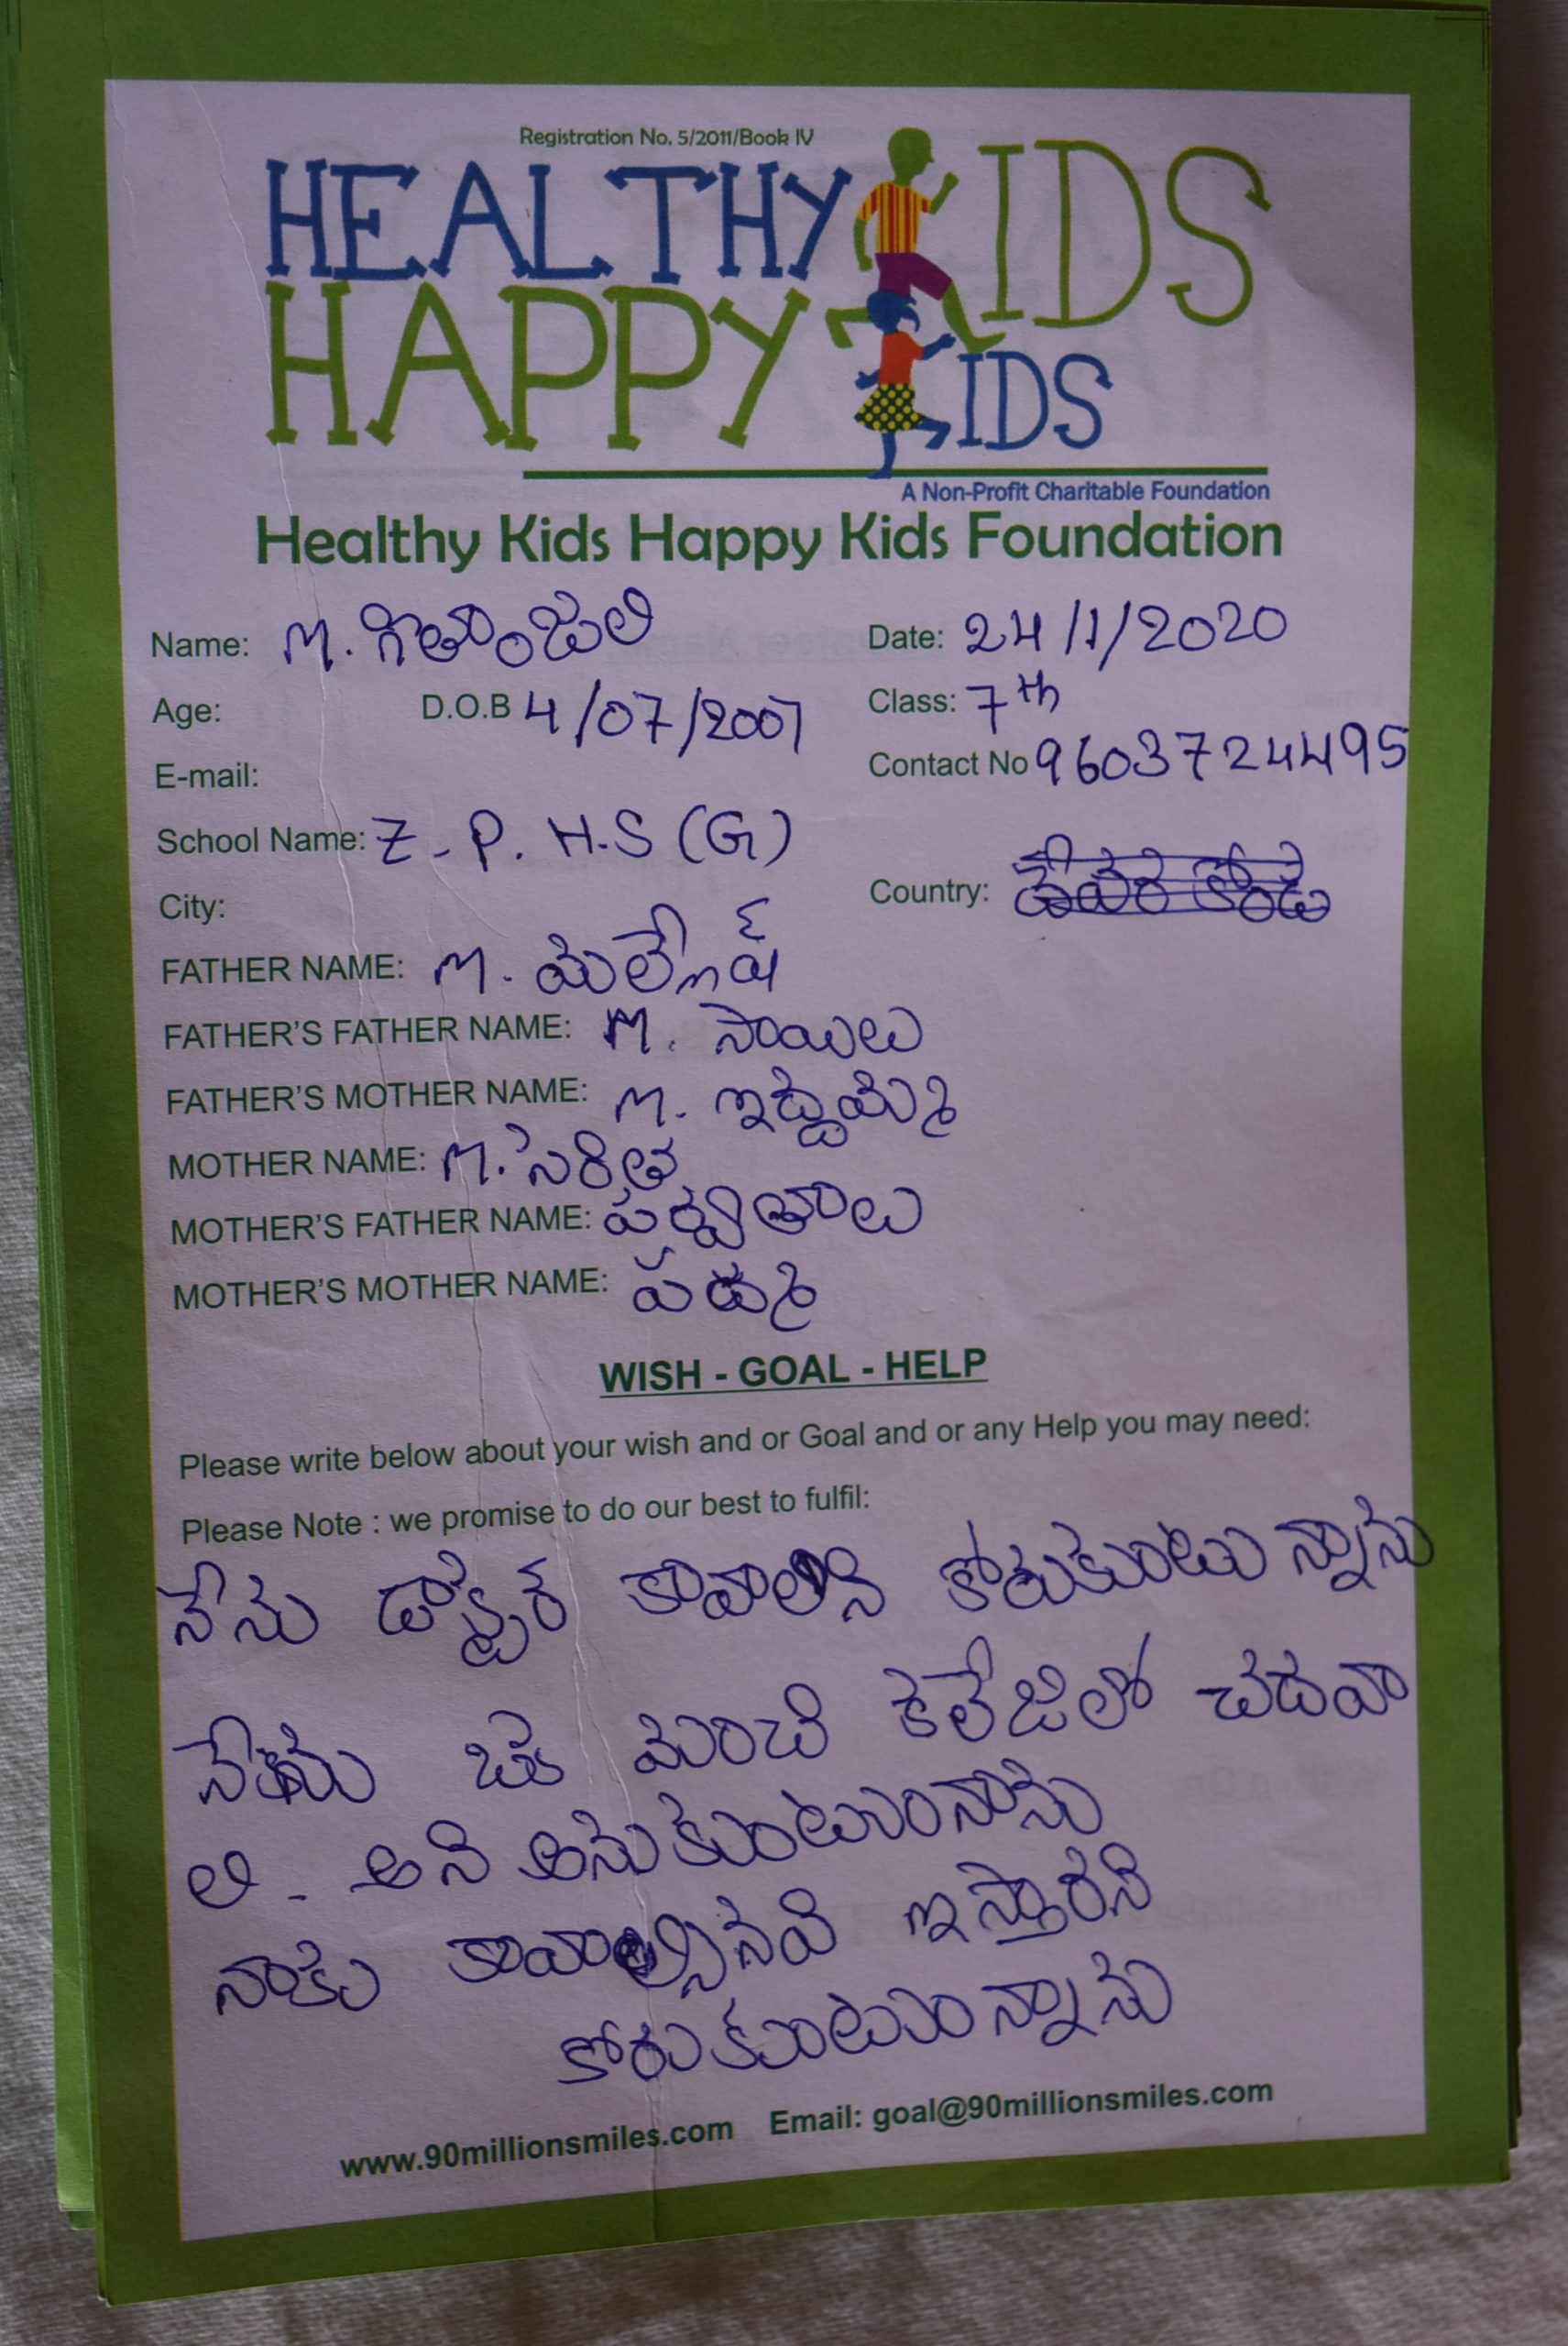 Registration No. 5/2011/Book IV
HEALTHY KIDS
HAPPY KIDS
A Non-Profit Charitable Foundation
Healthy Kids Happy Kids Foundation
Name: M. గీతాంజలి Date: 24/1/2020
Age: D.O.B 4/07/2007 Class: 7th
E-mail: Contact No 9603724495
School Name: Z.P.H.S (G)
City: Country:
FATHER NAME: M. మల్లేష్
FATHER'S FATHER NAME: M. సాయిలు
FATHER'S MOTHER NAME: M. ఇద్దమ్మ
MOTHER NAME: M. సరిత
MOTHER'S FATHER NAME: పర్వతాలు
MOTHER'S MOTHER NAME: పద్మ
WISH - GOAL - HELP
Please write below about your wish and or Goal and or any Help you may need:
Please Note : we promise to do our best to fulfil:
నేను డాక్టర్ కావాలని కోరుకుంటున్నాను
నేను ఒక మంచి కలేజిలో చదవా
లి. అని అనుకుంటుంనాను
నాకు కావాల్సినవి ఇస్తారని
కోరుకుంటుంన్నాను
www.90millionsmiles.com Email: goal@90millionsmiles.com